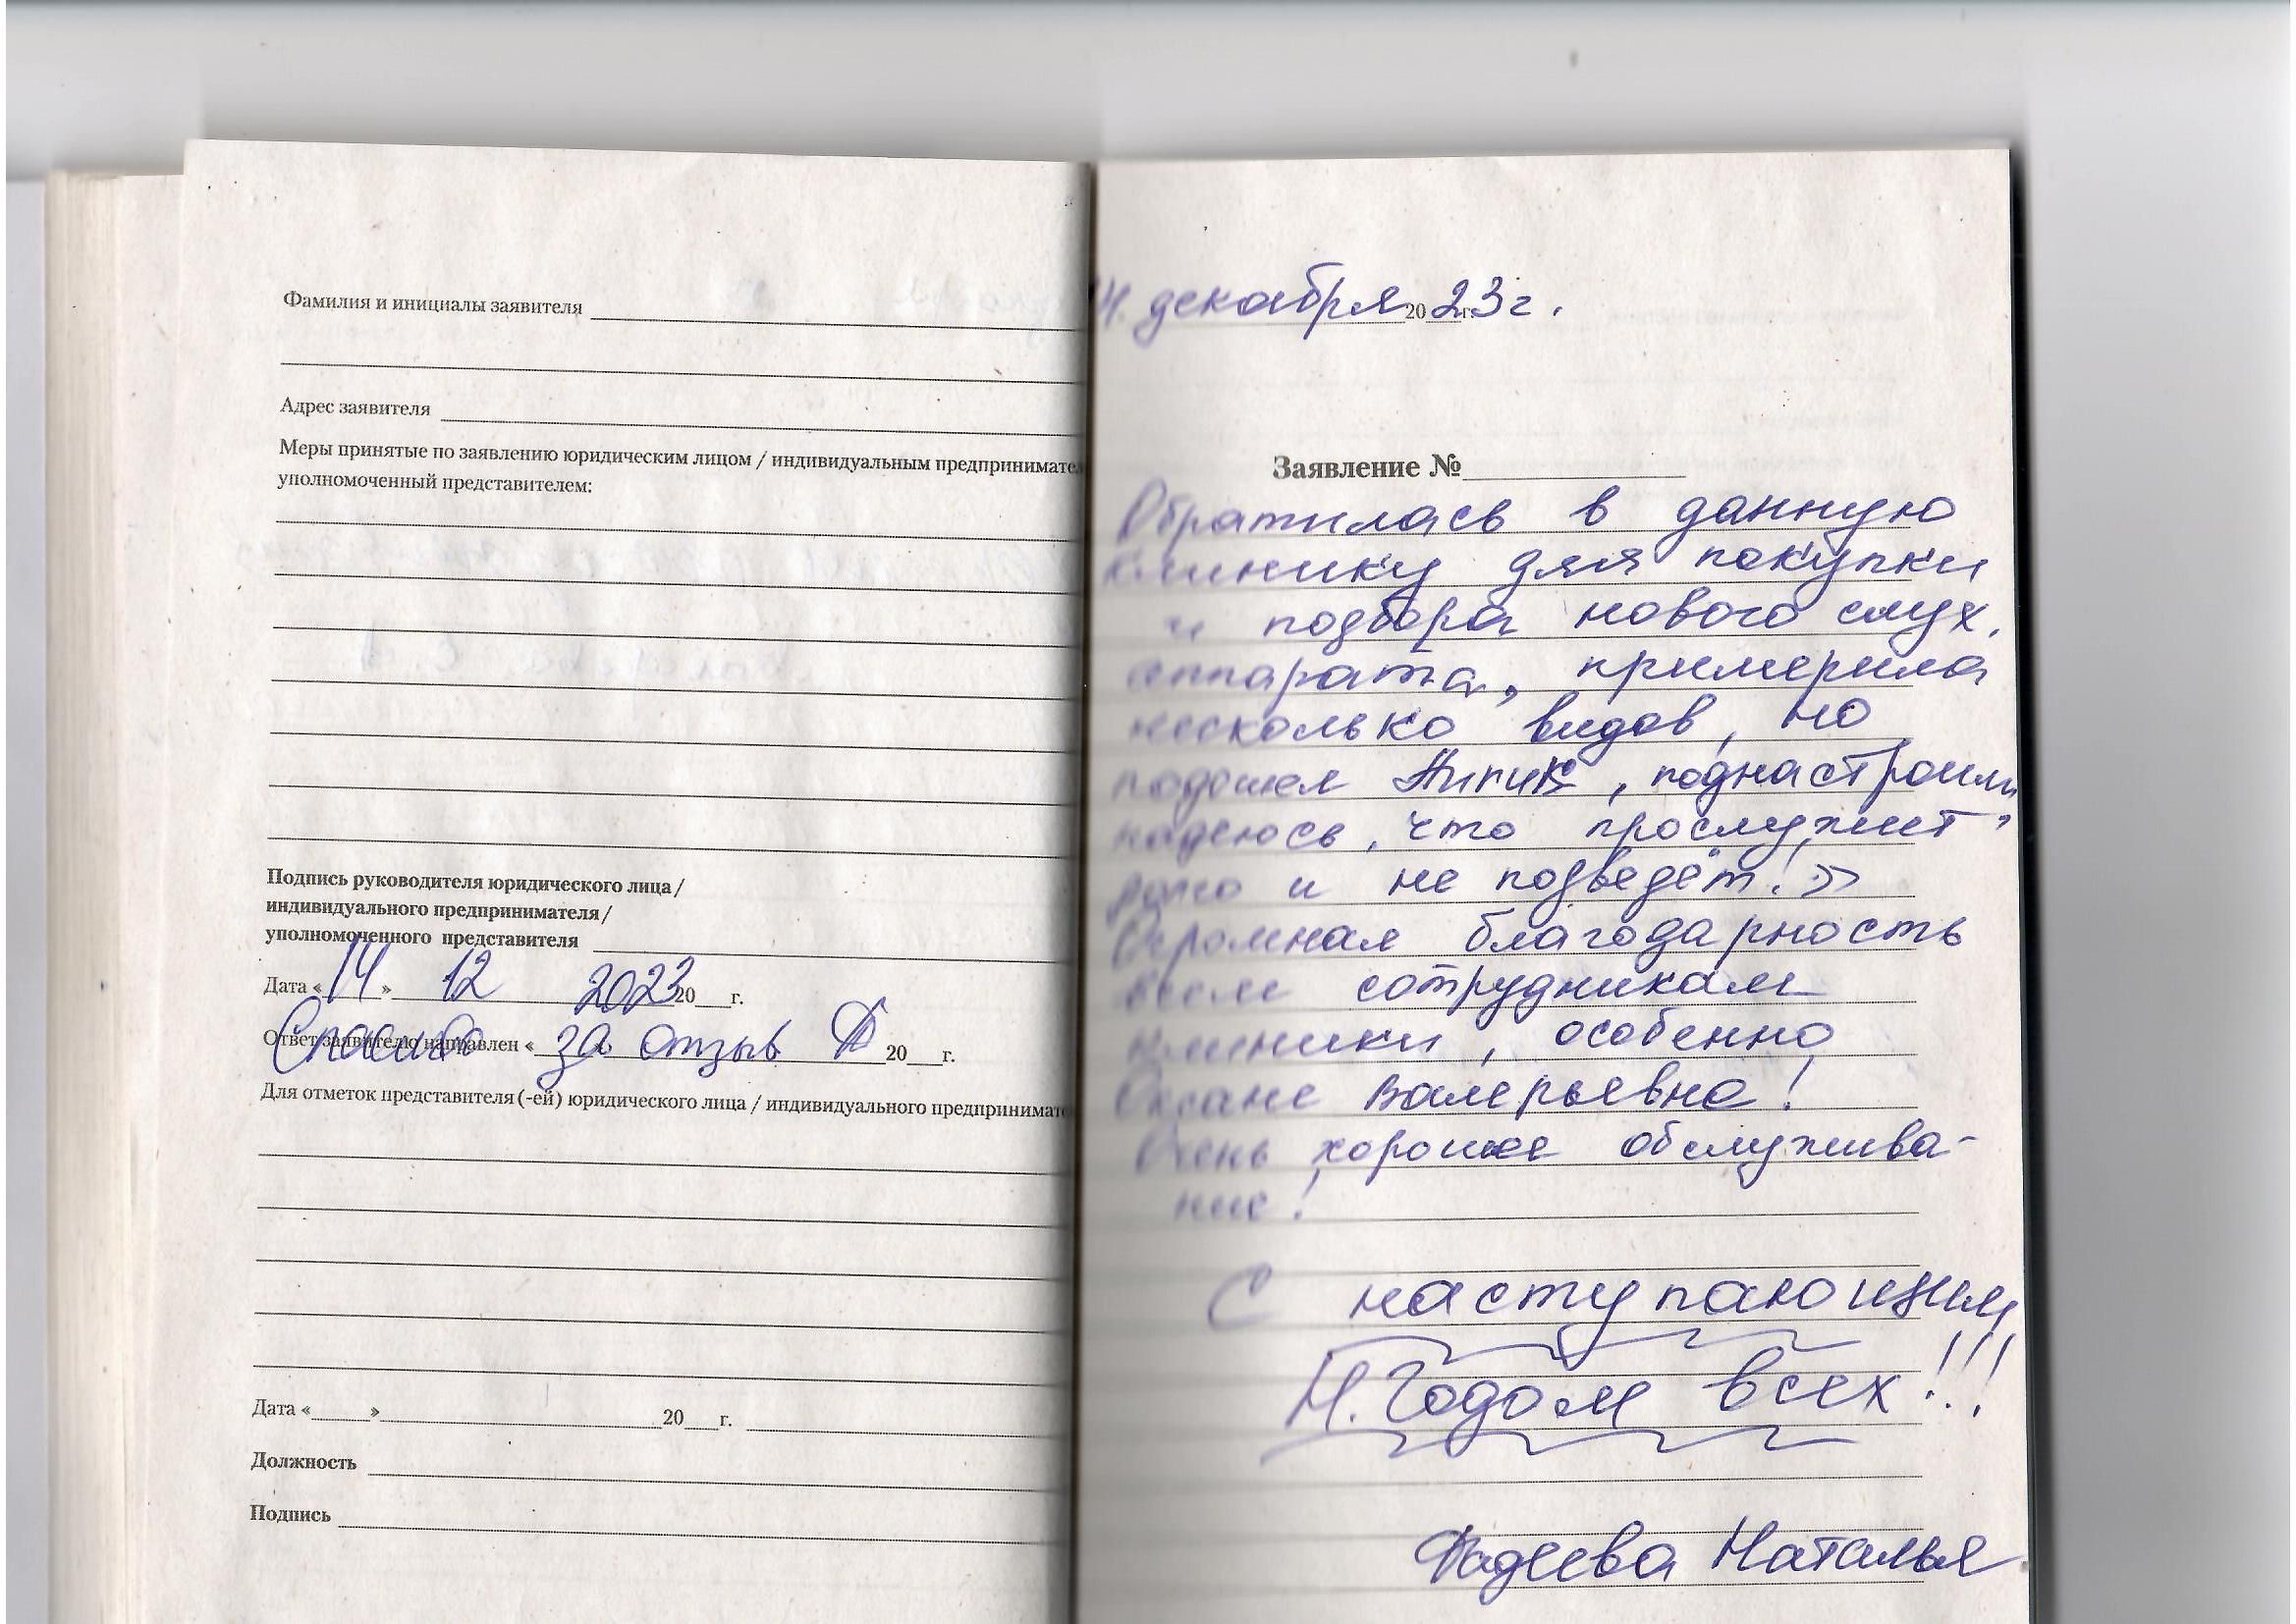 Фамилия и инициалы заявителя
Адрес заявителя
Меры принятые по заявлению юридическим лицом / индивидуальным предпринимате
уполномоченный представителем:
Подпись руководителя юридического лица /
индивидуального предпринимателя /
уполномоченного представителя
Дата « 14 » 12 2023 20 г.
Ответ заявителю направлен « 20 г.
Спасибо за отзыв
Для отметок представителя (-ей) юридического лица / индивидуального предпринимат
Дата « » 20 г.
Должность
Подпись
4. декабря 20 23 г.
Заявление №
Обратилась в данную
клинику для покупки
и подбора нового слух.
аппарата, примерила
несколько видов, но
подошел , поднастроили
надеюсь, что прослужит
и не подведёт!
Огромная благодарность
всем сотрудникам
клиники, особенно
Оксане Валерьевне!
Очень хорошее обслужива-
ние!
С наступающим
Н. Годом всех!!!
Фадеева Наталья